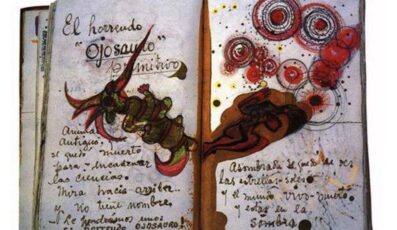 El horrendo
"OJOSAURO"
primitivo
Animal
Antiguo,
se quedó muerto
para encadenar
las ciencias.
Mira hacia arriba..
Y no tiene nombre.
-Le pondremos unos
El horrendo OJOSAURO!
Asombrada se quedó de ver
las estrellas-soles
y el mundo vivo-muerto
y estar en la
sombra